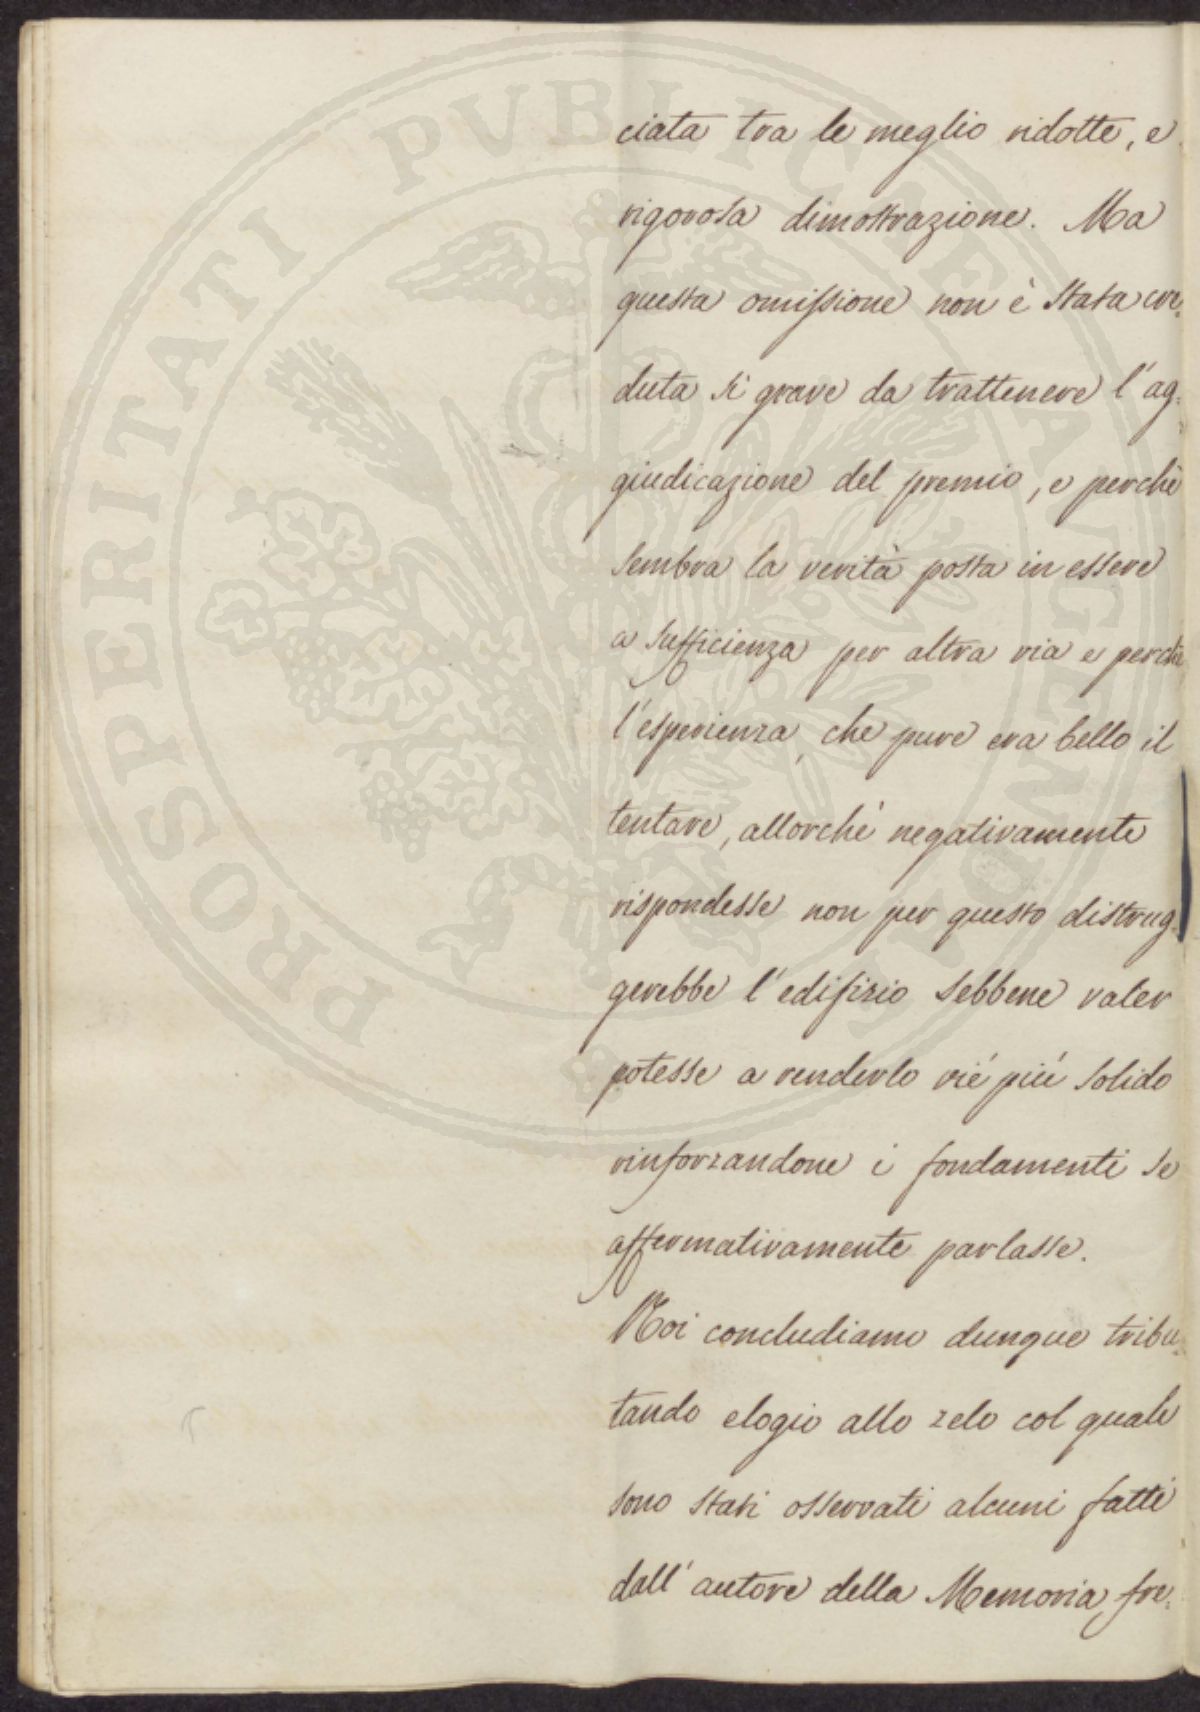 ciata tra le meglio ridotte, e
rigorosa dimostrazione. Ma
questa omissione non è stata cre-
duta sì grave da trattenere l'ag-
giudicazione del premio, e perchè
sembra la verità posta in essere
a sufficienza per altra via e perchè
l'esperienza, che pure era bello il
tentare, allorchè negativamente
rispondesse non per questo distrug-
gerebbe l'edifizio sebbene valer
potesse a renderlo viè più solido
rinforzandone i fondamenti se
affermativamente parlasse.
Noi concludiamo dunque tribu-
tando elogio allo zelo col quale
sono stati osservati alcuni fatti
dall'autore della Memoria, fre-
PROSPERITATI PUBLICAE AUGENDAE